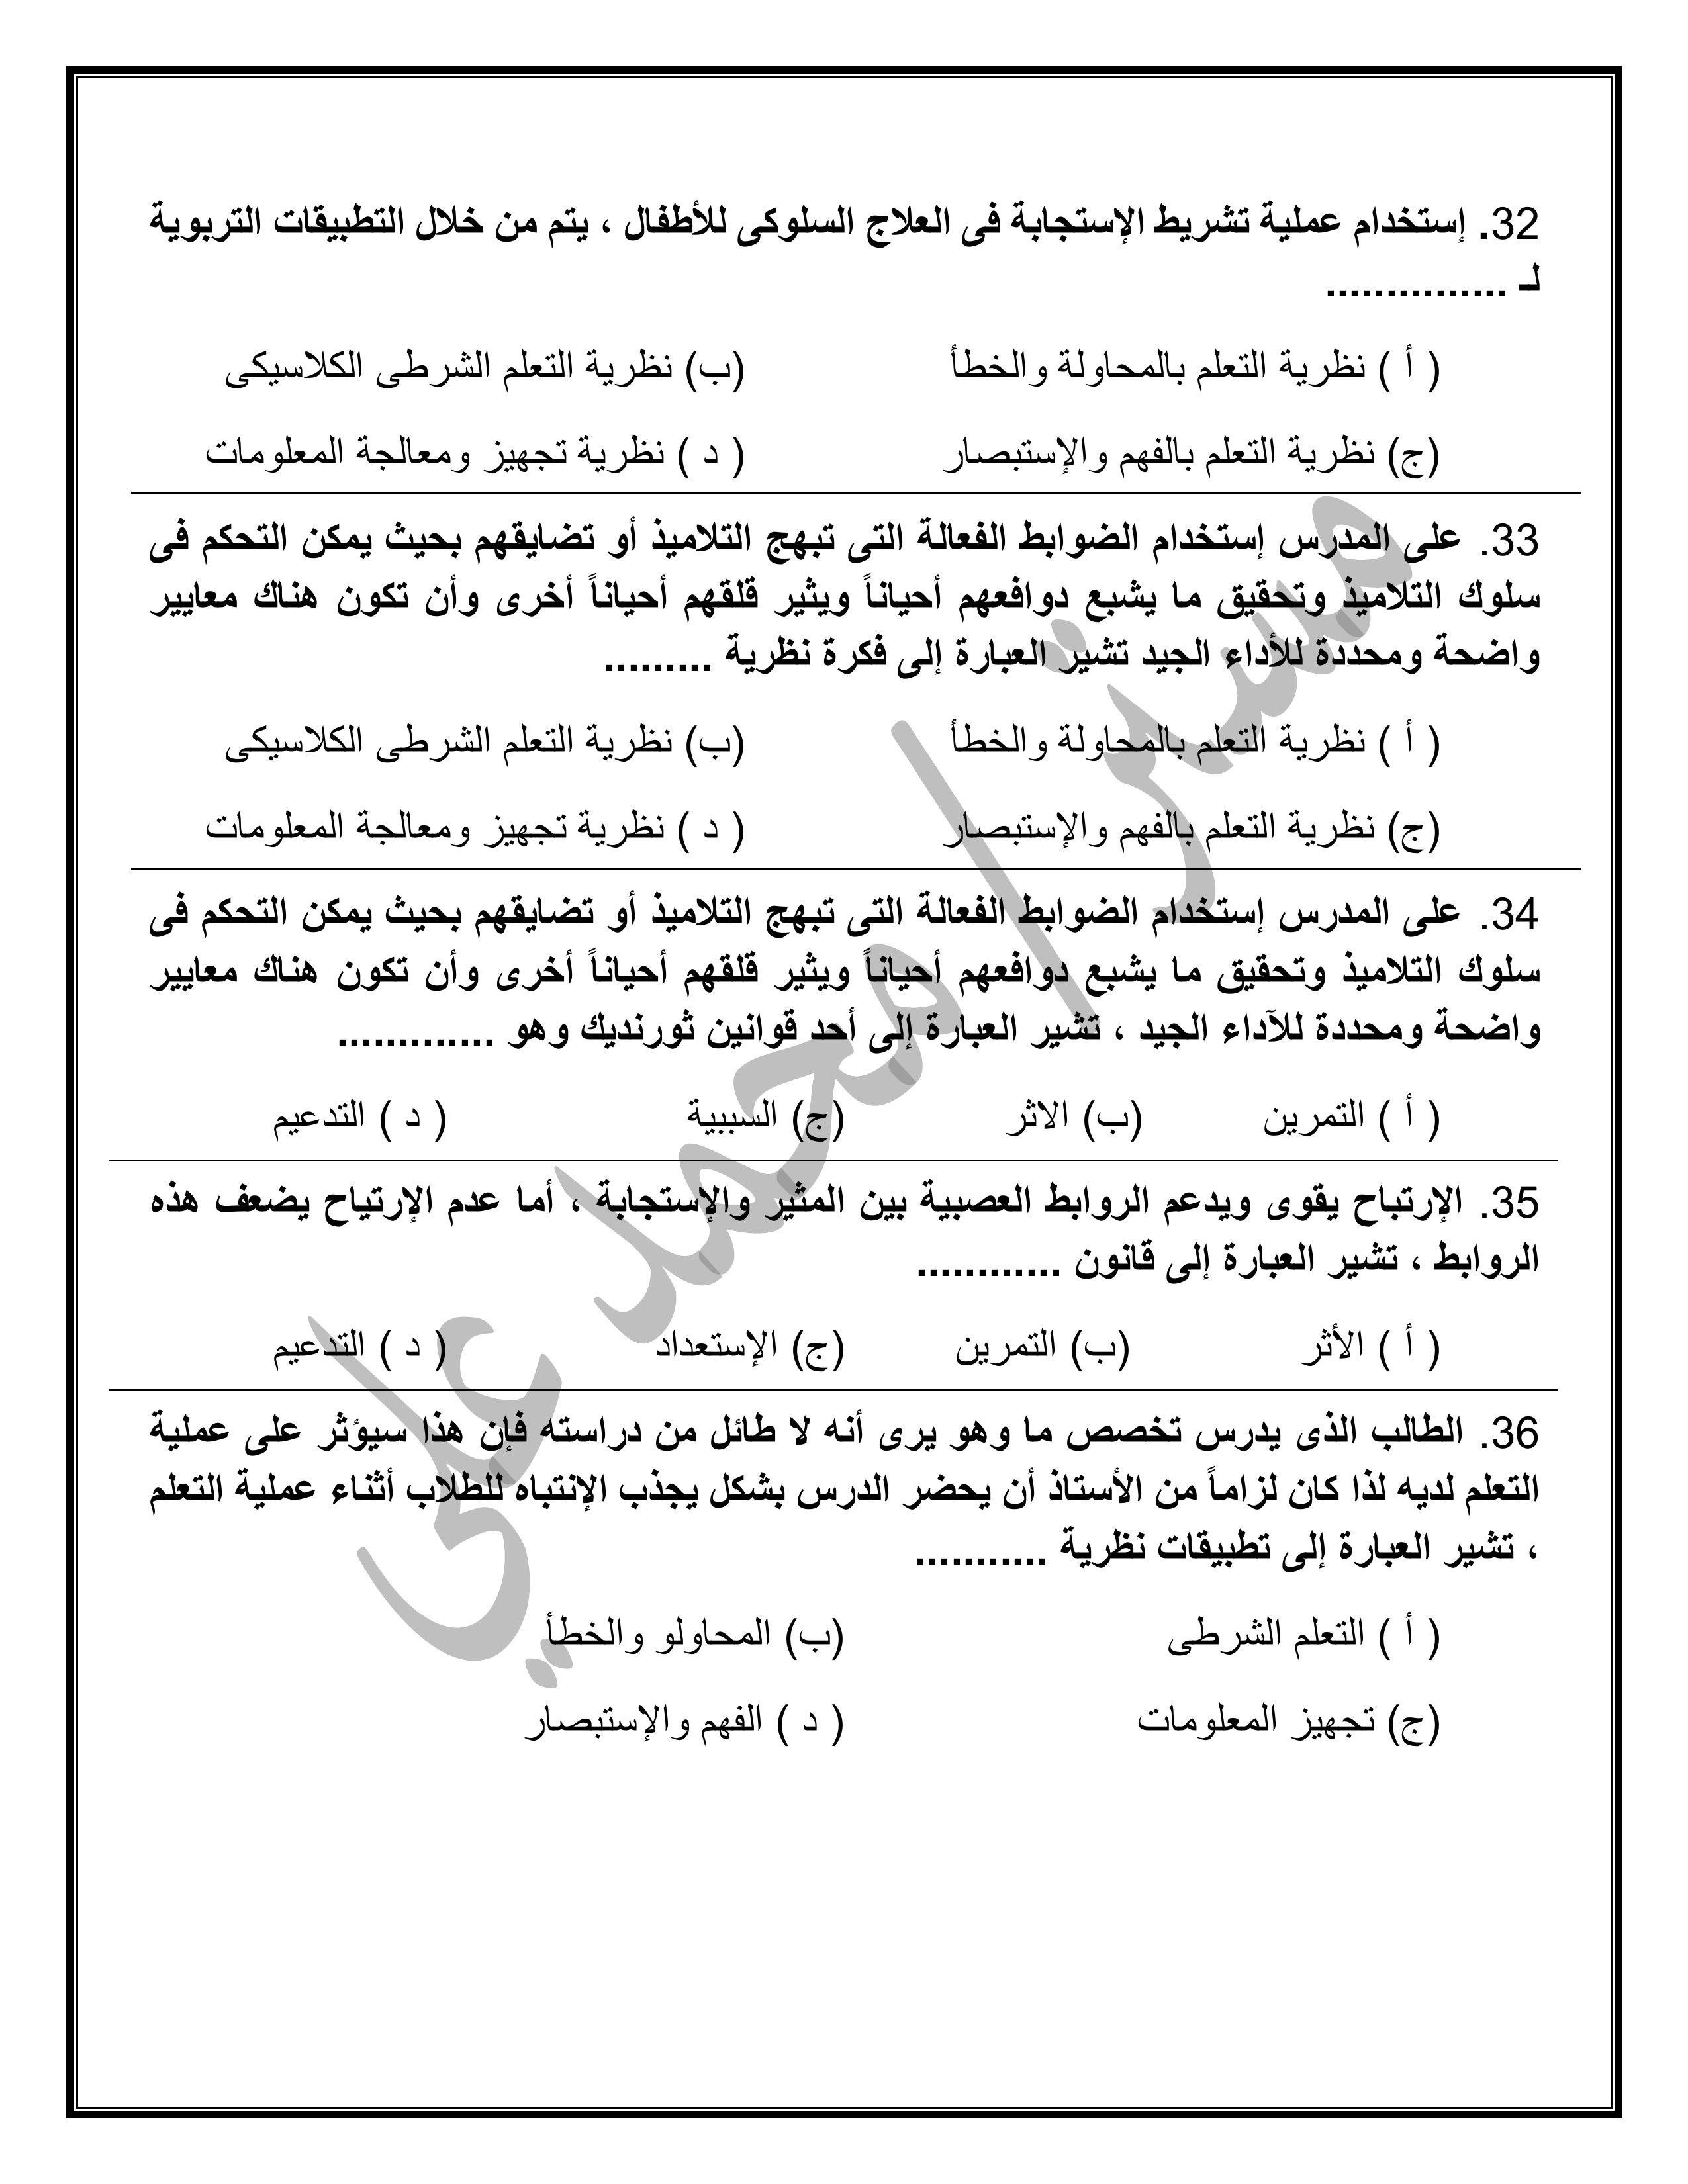 32. إستخدام عملية تشريط الإستجابة فى العلاج السلوكى للأطفال ، يتم من خلال التطبيقات التربوية
لـ ...............
( أ ) نظرية التعلم بالمحاولة والخطأ (ب) نظرية التعلم الشرطى الكلاسيكى
(ج) نظرية التعلم بالفهم والإستبصار ( د ) نظرية تجهيز ومعالجة المعلومات
33. على المدرس إستخدام الضوابط الفعالة التى تبهج التلاميذ أو تضايقهم بحيث يمكن التحكم فى
سلوك التلاميذ وتحقيق ما يشبع دوافعهم أحياناً ويثير قلقهم أحياناً أخرى وأن تكون هناك معايير
واضحة ومحددة للأداء الجيد تشير العبارة إلى فكرة نظرية .........
( أ ) نظرية التعلم بالمحاولة والخطأ (ب) نظرية التعلم الشرطى الكلاسيكى
(ج) نظرية التعلم بالفهم والإستبصار ( د ) نظرية تجهيز ومعالجة المعلومات
34. على المدرس إستخدام الضوابط الفعالة التى تبهج التلاميذ أو تضايقهم بحيث يمكن التحكم فى
سلوك التلاميذ وتحقيق ما يشبع دوافعهم أحياناً ويثير قلقهم أحياناً أخرى وأن تكون هناك معايير
واضحة ومحددة للآداء الجيد ، تشير العبارة إلى أحد قوانين ثورنديك وهو .............
( أ ) التمرين (ب) الاثر (ج) السببية ( د ) التدعيم
35. الإرتباح يقوى ويدعم الروابط العصبية بين المثير والإستجابة ، أما عدم الإرتياح يضعف هذه
الروابط ، تشير العبارة إلى قانون ............
( أ ) الأثر (ب) التمرين (ج) الإستعداد ( د ) التدعيم
36. الطالب الذى يدرس تخصص ما وهو يرى أنه لا طائل من دراسته فإن هذا سيؤثر على عملية
التعلم لديه لذا كان لزاماً من الأستاذ أن يحضر الدرس بشكل يجذب الإنتباه للطلاب أثناء عملية التعلم
، تشير العبارة إلى تطبيقات نظرية ...........
( أ ) التعلم الشرطى (ب) المحاولو والخطأ
(ج) تجهيز المعلومات ( د ) الفهم والإستبصار
مستر/ محمد علي